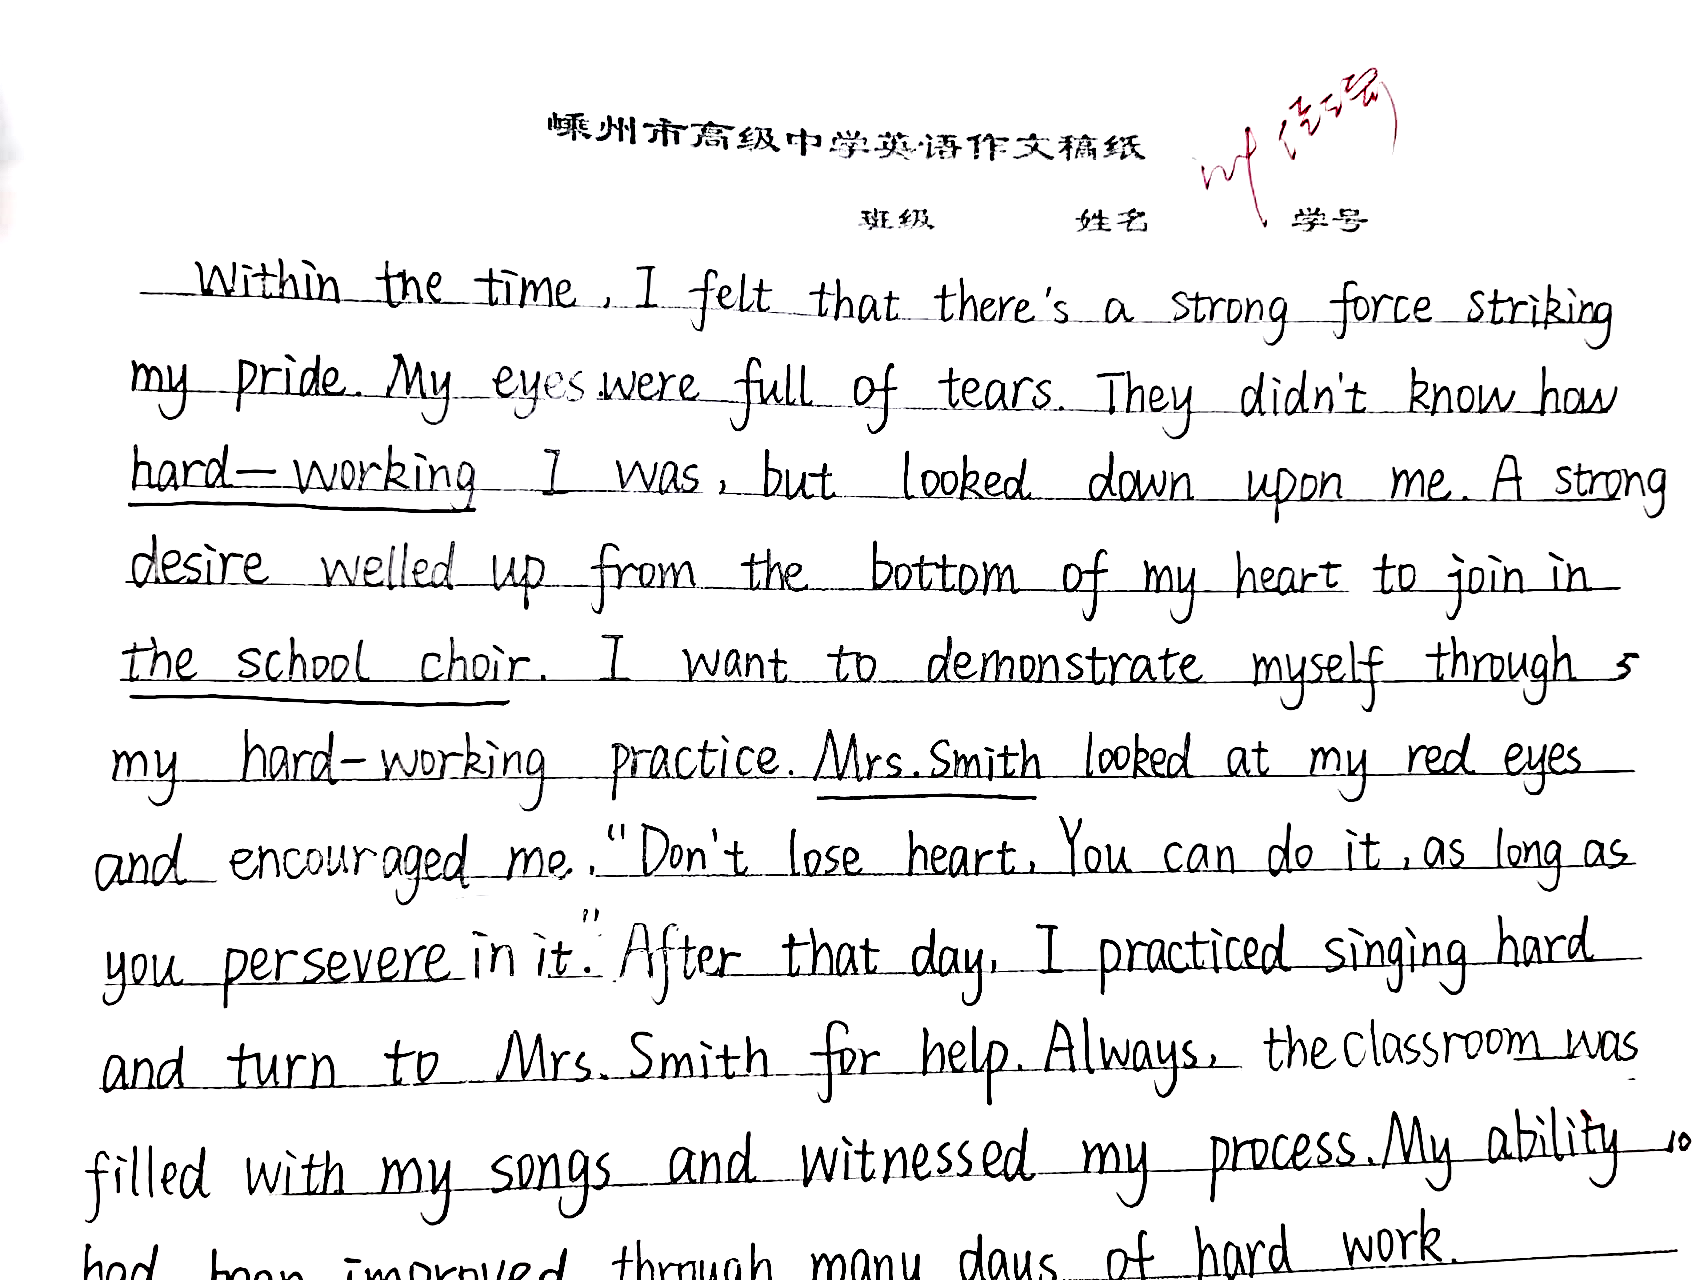 嵊州市高级中学英语作文稿纸
班级 姓名 学号
Within the time, I felt that there's a strong force striking
my pride. My eyes were full of tears. They didn't know how
hard-working I was, but looked down upon me. A strong
desire welled up from the bottom of my heart to join in
the school choir. I want to demonstrate myself through 5
my hard-working practice. Mrs. Smith looked at my red eyes
and encouraged me. "Don't lose heart. You can do it, as long as
you persevere in it." After that day, I practiced singing hard
and turn to Mrs. Smith for help. Always, the classroom was
filled with my songs and witnessed my process. My ability 10
had been improved through many days of hard work.